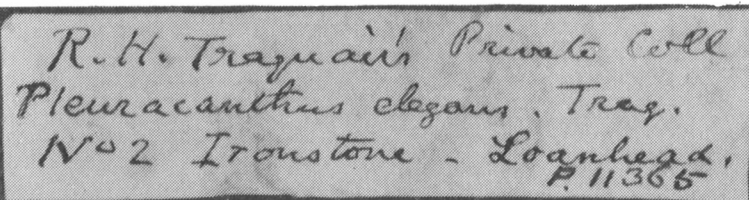 R. H. Traquair's Private Coll
Pleuracanthus elegans. Traq.
No 2 Ironstone - Loanhead.
P. 11365